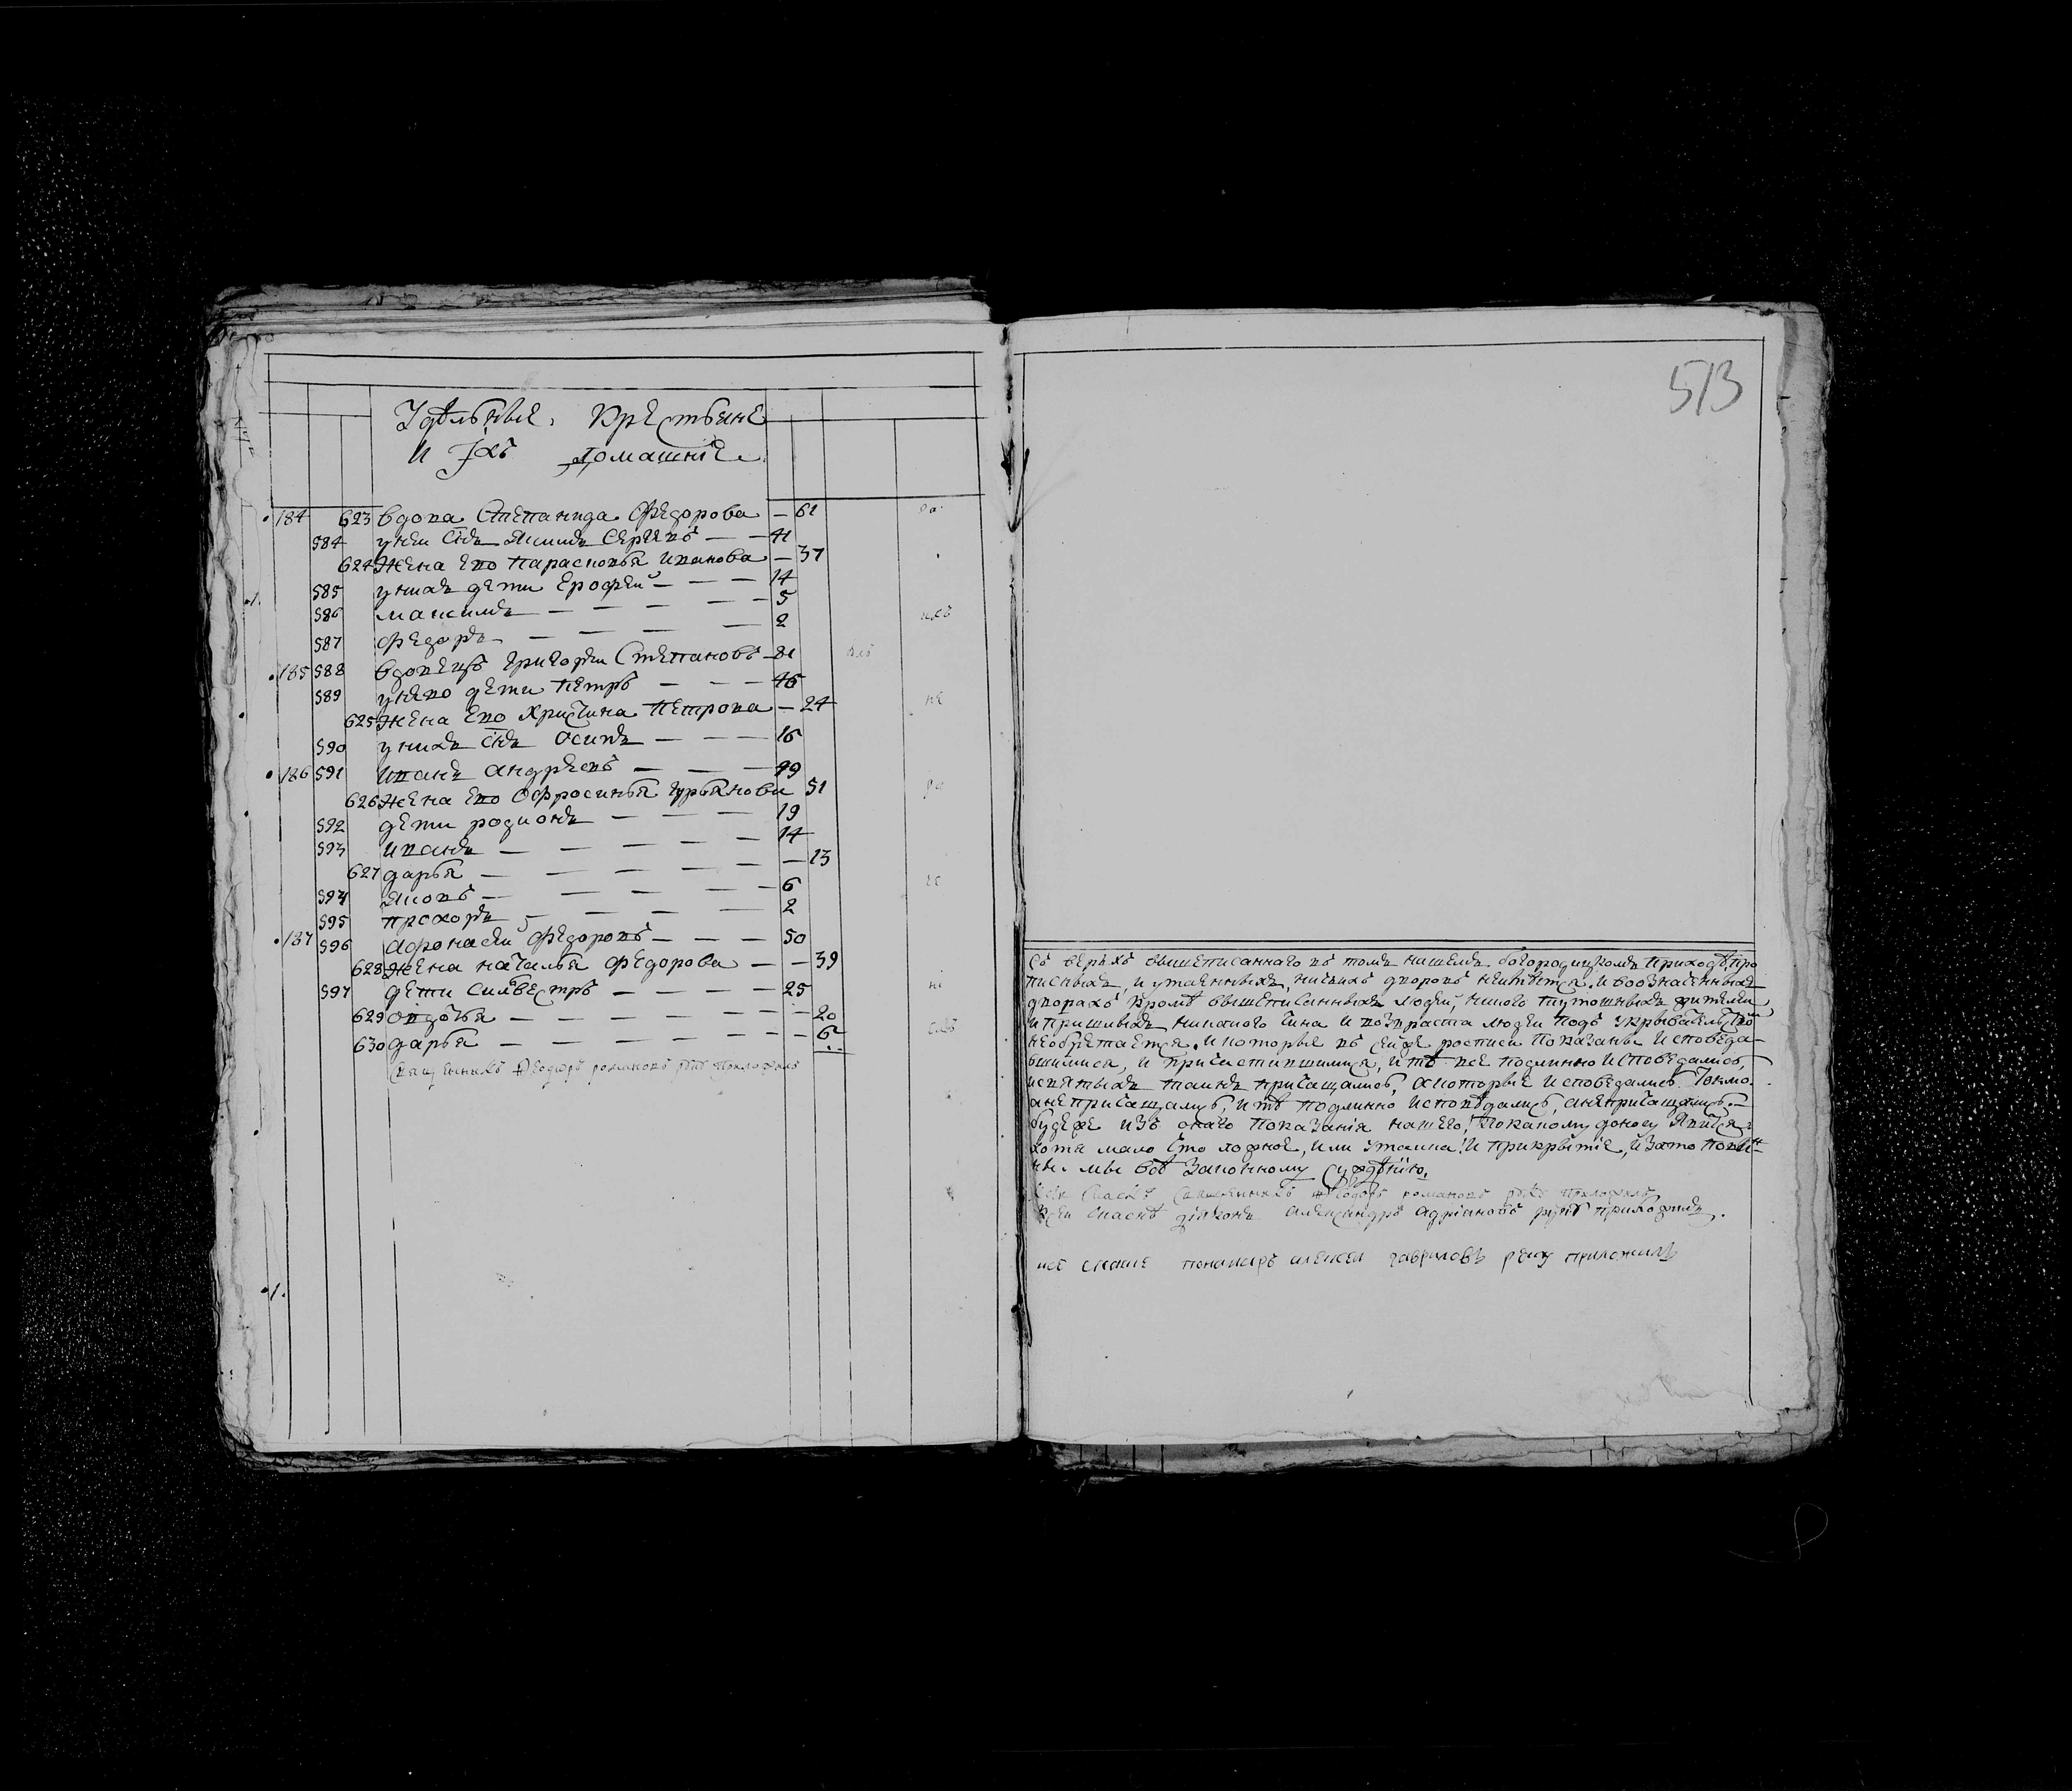 Удѣльные Крестьяне
и Ихъ домашніе
184 623 вдова Степанида Федорова — 61
584 у неи снъ Якимъ Сергеевъ — — 41
624 Жена Ево Парасковья Иванова — 37
585 у нихъ дети Ерофеи — — — 14
586 Максимъ — — — — 5
587 Федоръ — — — — 2
185 588 вдовецъ Григореи Степановъ — 81
589 у нево дети Петръ — — — 46
625 Жена Ево Христина Петрова — 24
590 у нихъ снъ Осипъ — — — 16
186 591 Иванъ Андреевъ — — — 49
626 Жена Ево Офросинья Гурьянова 51
592 дети Родионъ — — — 19
593 Иванъ — — — — 14
627 дарья — — — — 13
594 Яковъ — — — — 6
595 Прохоръ — — — 2
187 596 Афонасеи Федоровъ — — — 50
628 Жена наталья Федорова — — 39
597 дети Силвестръ — — — — 25
629 Овдотья — — — — — 20
630 дарья — — — — — 6
Священникъ Ѳеодоръ романовъ руку Приложилъ
513
Съ верхъ вышеписаннаго въ томъ нашемъ богородицкомъ Приходѣ, про
писныхъ, и утаенныхъ, никакихъ дворовъ неимѣется. и вобозначенныхъ
дворахъ Кромѣ вышеписанныхъ людеи, никого тутошныхъ жителеи,
и Пришлыхъ никакого чина и возраста людеи подъ укрывательствомъ
необретается. и которые въ сеиже росписи Показаны Исповеда-
вшимися, и Причастившимися, и тѣ все подлинно Исповедались,
и святыхъ таинъ причащались, а которые исповедались токмо.
а не причащались, и тѣ подлинно исповѣдались, а не причащались. —
будеже изъ онаго Показанія нашего, Покакому доносу Явится
хотя мало что ложное, или утаика и прикрытіе, и зато повин-
ны мы Законному Сужденію.
Ксеи Сказкѣ Священникъ Ѳеодоръ романовъ руку Приложилъ
Ксеи сказкѣ діаконъ Александръ Адріановъ руку приложилъ.
понамарь алексеи гавриловъ руку приложилъ